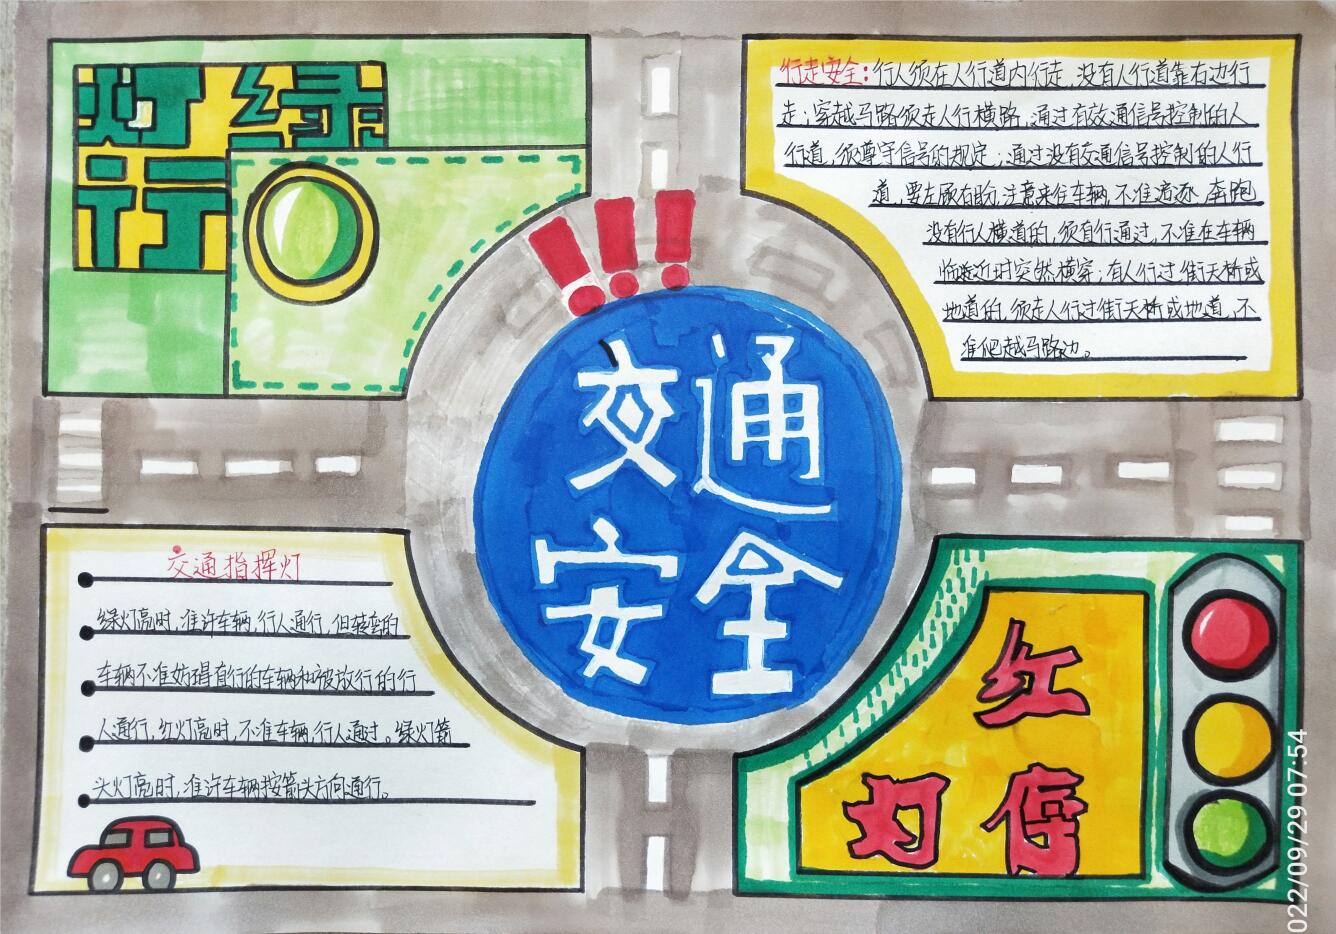 灯绿
行
行走安全:行人须在人行道内行走,没有人行道靠右边行
走;穿越马路须走人行横路,通过有效通信号控制的人
行道,须遵守信号的规定;通过没有交通信号控制的人行
道,要左顾右盼,注意来往车辆,不准追逐,奔跑
没有行人横道的,须直行通过,不准在车辆
临近时突然横穿;有人行过街天桥或
地道的,须走人行过街天桥或地道,不
准爬越马路边。
!!!
交通
安全
交通指挥灯
绿灯亮时,准许车辆,行人通行,但转弯的
车辆不准妨碍直行的车辆和被放行的行
人通行,红灯亮时,不准车辆,行人通过。绿灯箭
头灯亮时,准许车辆按箭头方向通行。
红
灯停
022/09/29 07:54